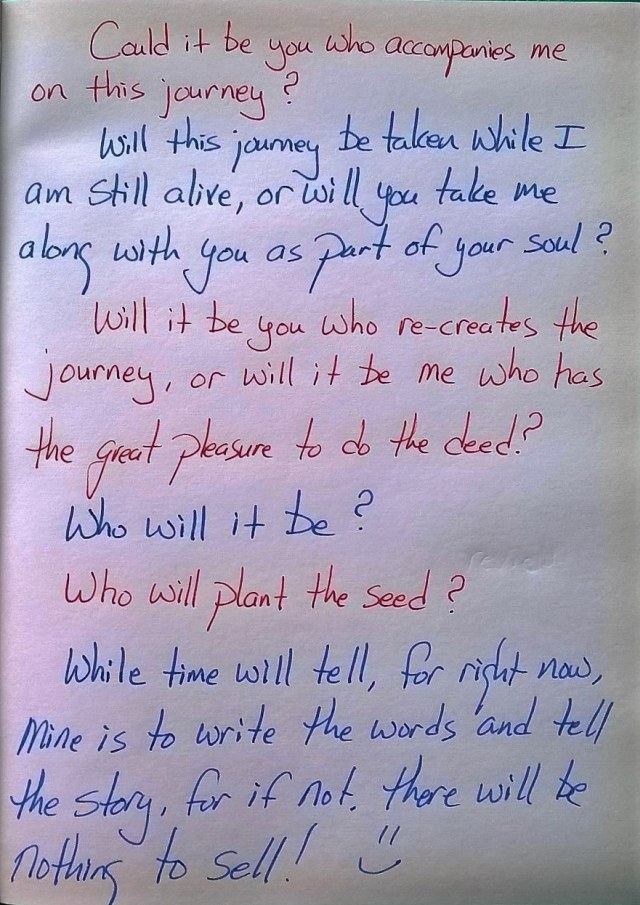 Could it be you who accompanies me
on this journey?
Will this journey be taken while I
am still alive, or will you take me
along with you as part of your soul?
Will it be you who re-creates the
journey, or will it be me who has
the great pleasure to do the deed?
Who will it be?
Who will plant the seed?
While time will tell, for right now,
Mine is to write the words and tell
the story, for if not, there will be
nothing to sell! :)